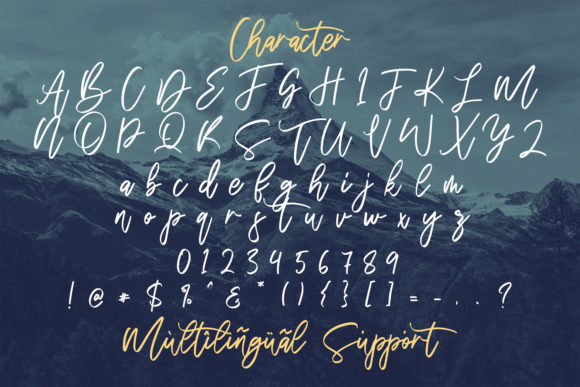 Character
A B C D E F G H I J K L M
N O P Q R S T U V W X Y Z
a b c d e f g h i j k l m
n o p q r s t u v w x y z
0 1 2 3 4 5 6 7 8 9
! @ # $ % ^ & * ( ) { } [ ] = - . . ?
Mùltílïñgüãl Sùppòrt